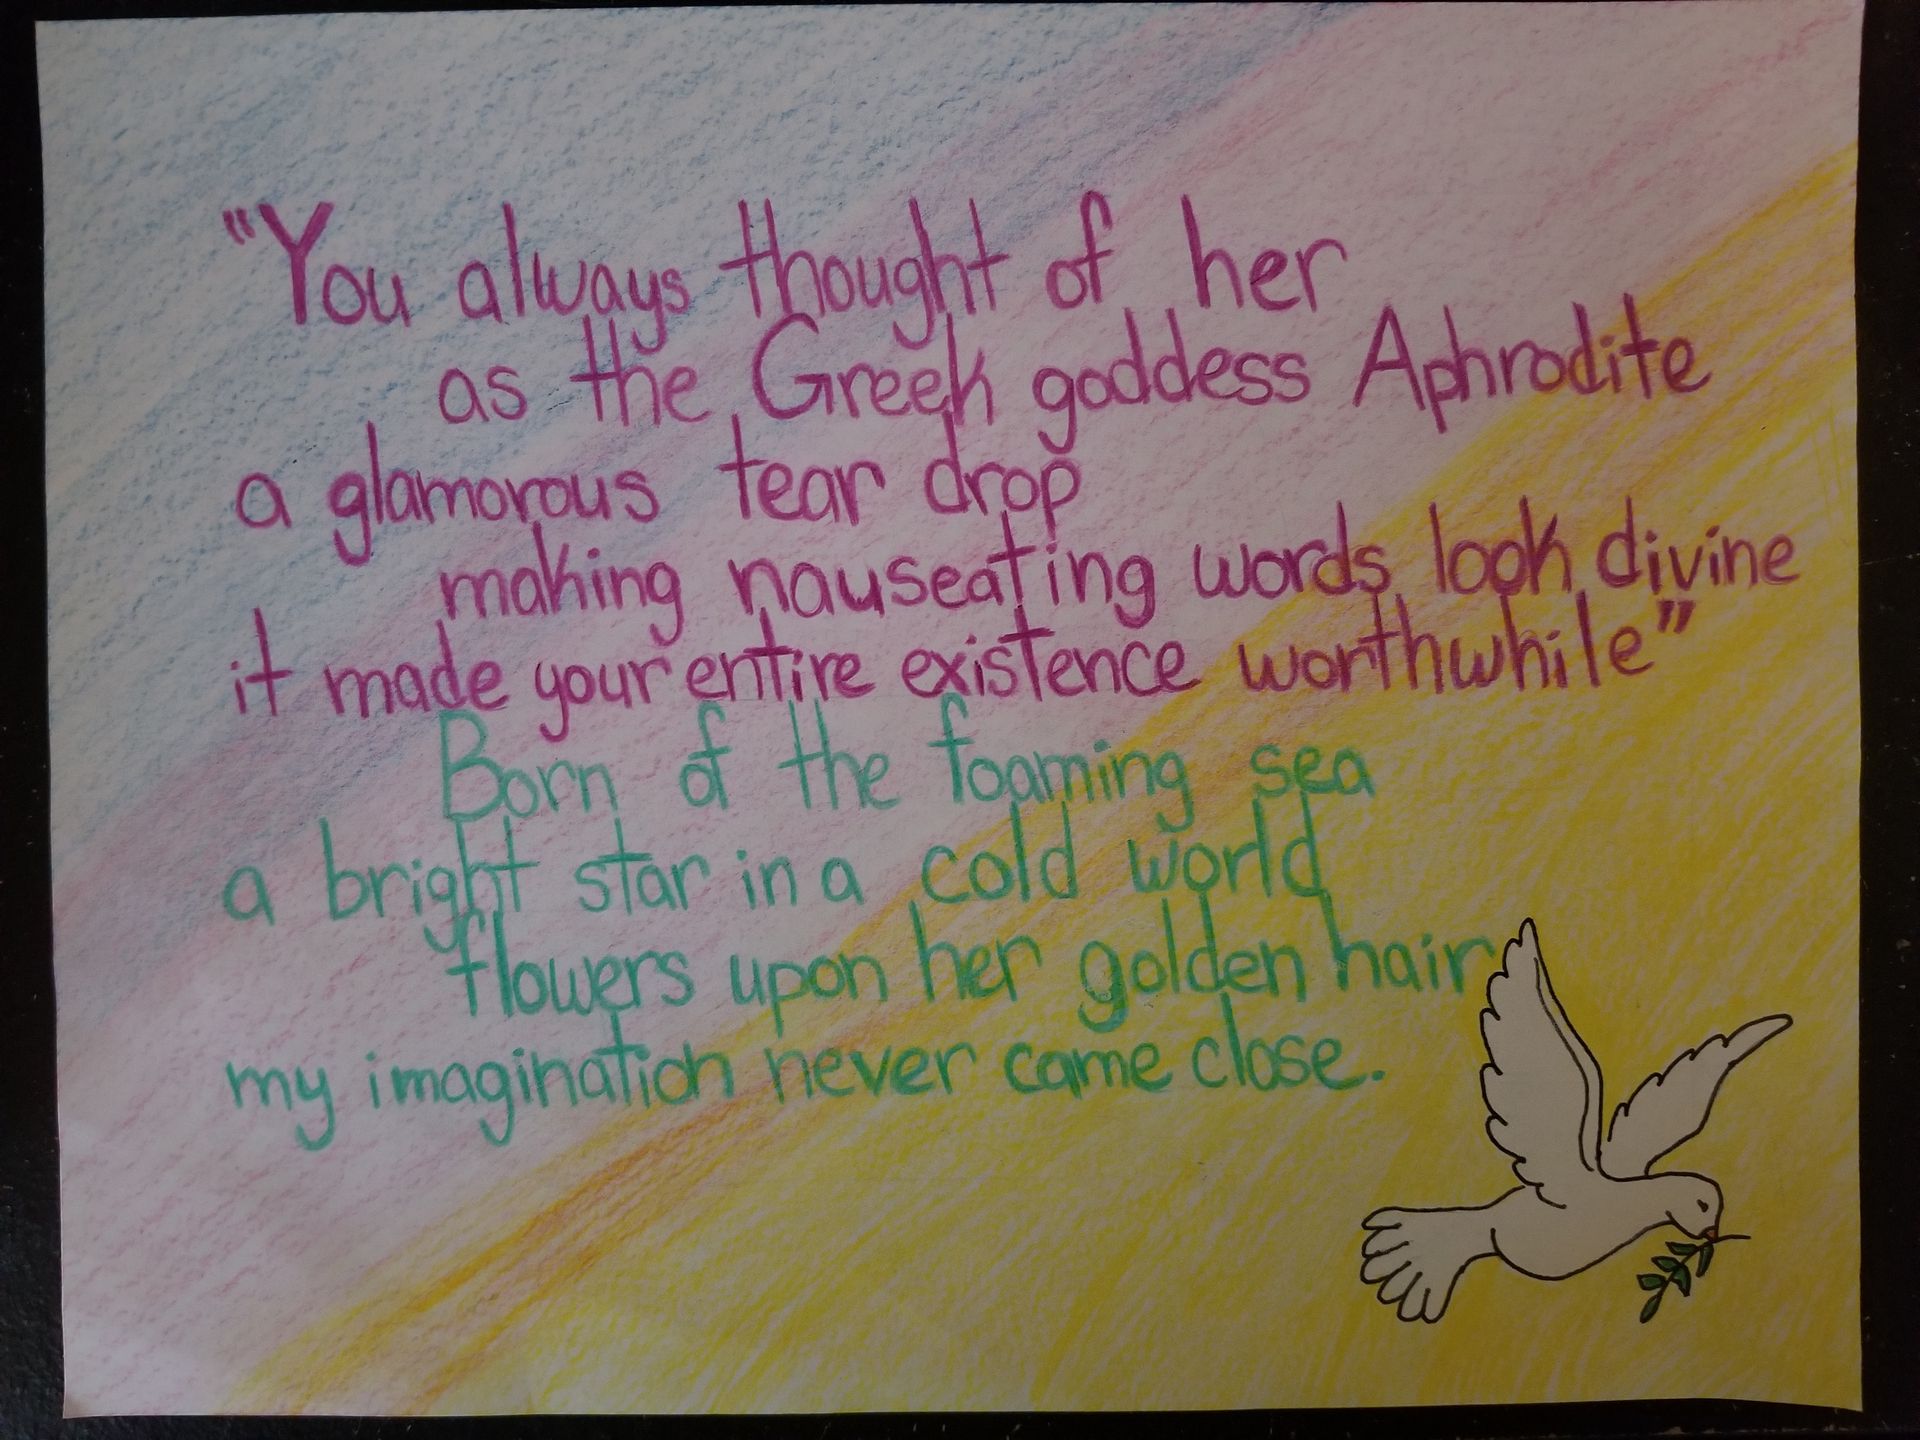 "You always thought of her
as the Greek goddess Aphrodite
a glamorous tear drop
making nauseating words look divine
it made your entire existence worthwhile"
Born of the foaming sea
a bright star in a cold world
flowers upon her golden hair
my imagination never came close.